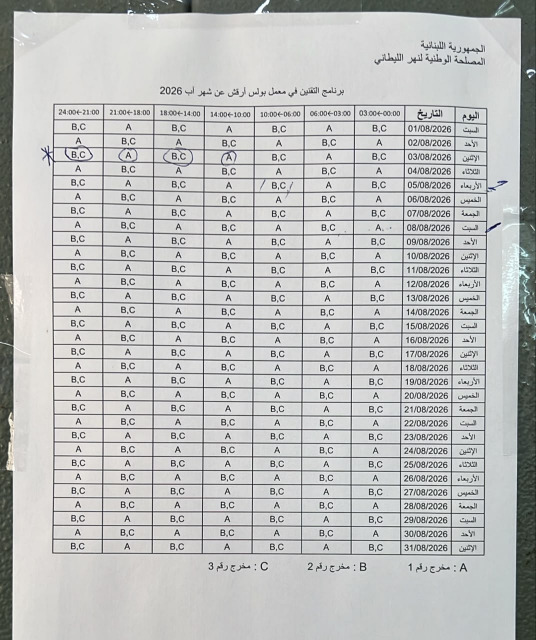 الجمهورية اللبنانية
المصلحة الوطنية لنهر الليطاني
برنامج التقنين في معمل بولس أرقش عن شهر آب 2026
اليوم التاريخ 03:00←00:00 06:00←03:00 10:00←06:00 14:00←10:00 18:00←14:00 21:00←18:00 24:00←21:00
السبت 01/08/2026 B,C A B,C A B,C A B,C
الأحد 02/08/2026 A B,C A B,C A B,C A
الإثنين 03/08/2026 B,C A B,C A B,C A B,C
الثلاثاء 04/08/2026 A B,C A B,C A B,C A
الأربعاء 05/08/2026 B,C A B,C A B,C A B,C
الخميس 06/08/2026 A B,C A B,C A B,C A
الجمعة 07/08/2026 B,C A B,C A B,C A B,C
السبت 08/08/2026 A B,C A B,C A B,C A
الأحد 09/08/2026 B,C A B,C A B,C A B,C
الإثنين 10/08/2026 A B,C A B,C A B,C A
الثلاثاء 11/08/2026 B,C A B,C A B,C A B,C
الأربعاء 12/08/2026 A B,C A B,C A B,C A
الخميس 13/08/2026 B,C A B,C A B,C A B,C
الجمعة 14/08/2026 A B,C A B,C A B,C A
السبت 15/08/2026 B,C A B,C A B,C A B,C
الأحد 16/08/2026 A B,C A B,C A B,C A
الإثنين 17/08/2026 B,C A B,C A B,C A B,C
الثلاثاء 18/08/2026 A B,C A B,C A B,C A
الأربعاء 19/08/2026 B,C A B,C A B,C A B,C
الخميس 20/08/2026 A B,C A B,C A B,C A
الجمعة 21/08/2026 B,C A B,C A B,C A B,C
السبت 22/08/2026 A B,C A B,C A B,C A
الأحد 23/08/2026 B,C A B,C A B,C A B,C
الإثنين 24/08/2026 A B,C A B,C A B,C A
الثلاثاء 25/08/2026 B,C A B,C A B,C A B,C
الأربعاء 26/08/2026 A B,C A B,C A B,C A
الخميس 27/08/2026 B,C A B,C A B,C A B,C
الجمعة 28/08/2026 A B,C A B,C A B,C A
السبت 29/08/2026 B,C A B,C A B,C A B,C
الأحد 30/08/2026 A B,C A B,C A B,C A
الإثنين 31/08/2026 B,C A B,C A B,C A B,C
A : مخرج رقم 1 B : مخرج رقم 2 C : مخرج رقم 3